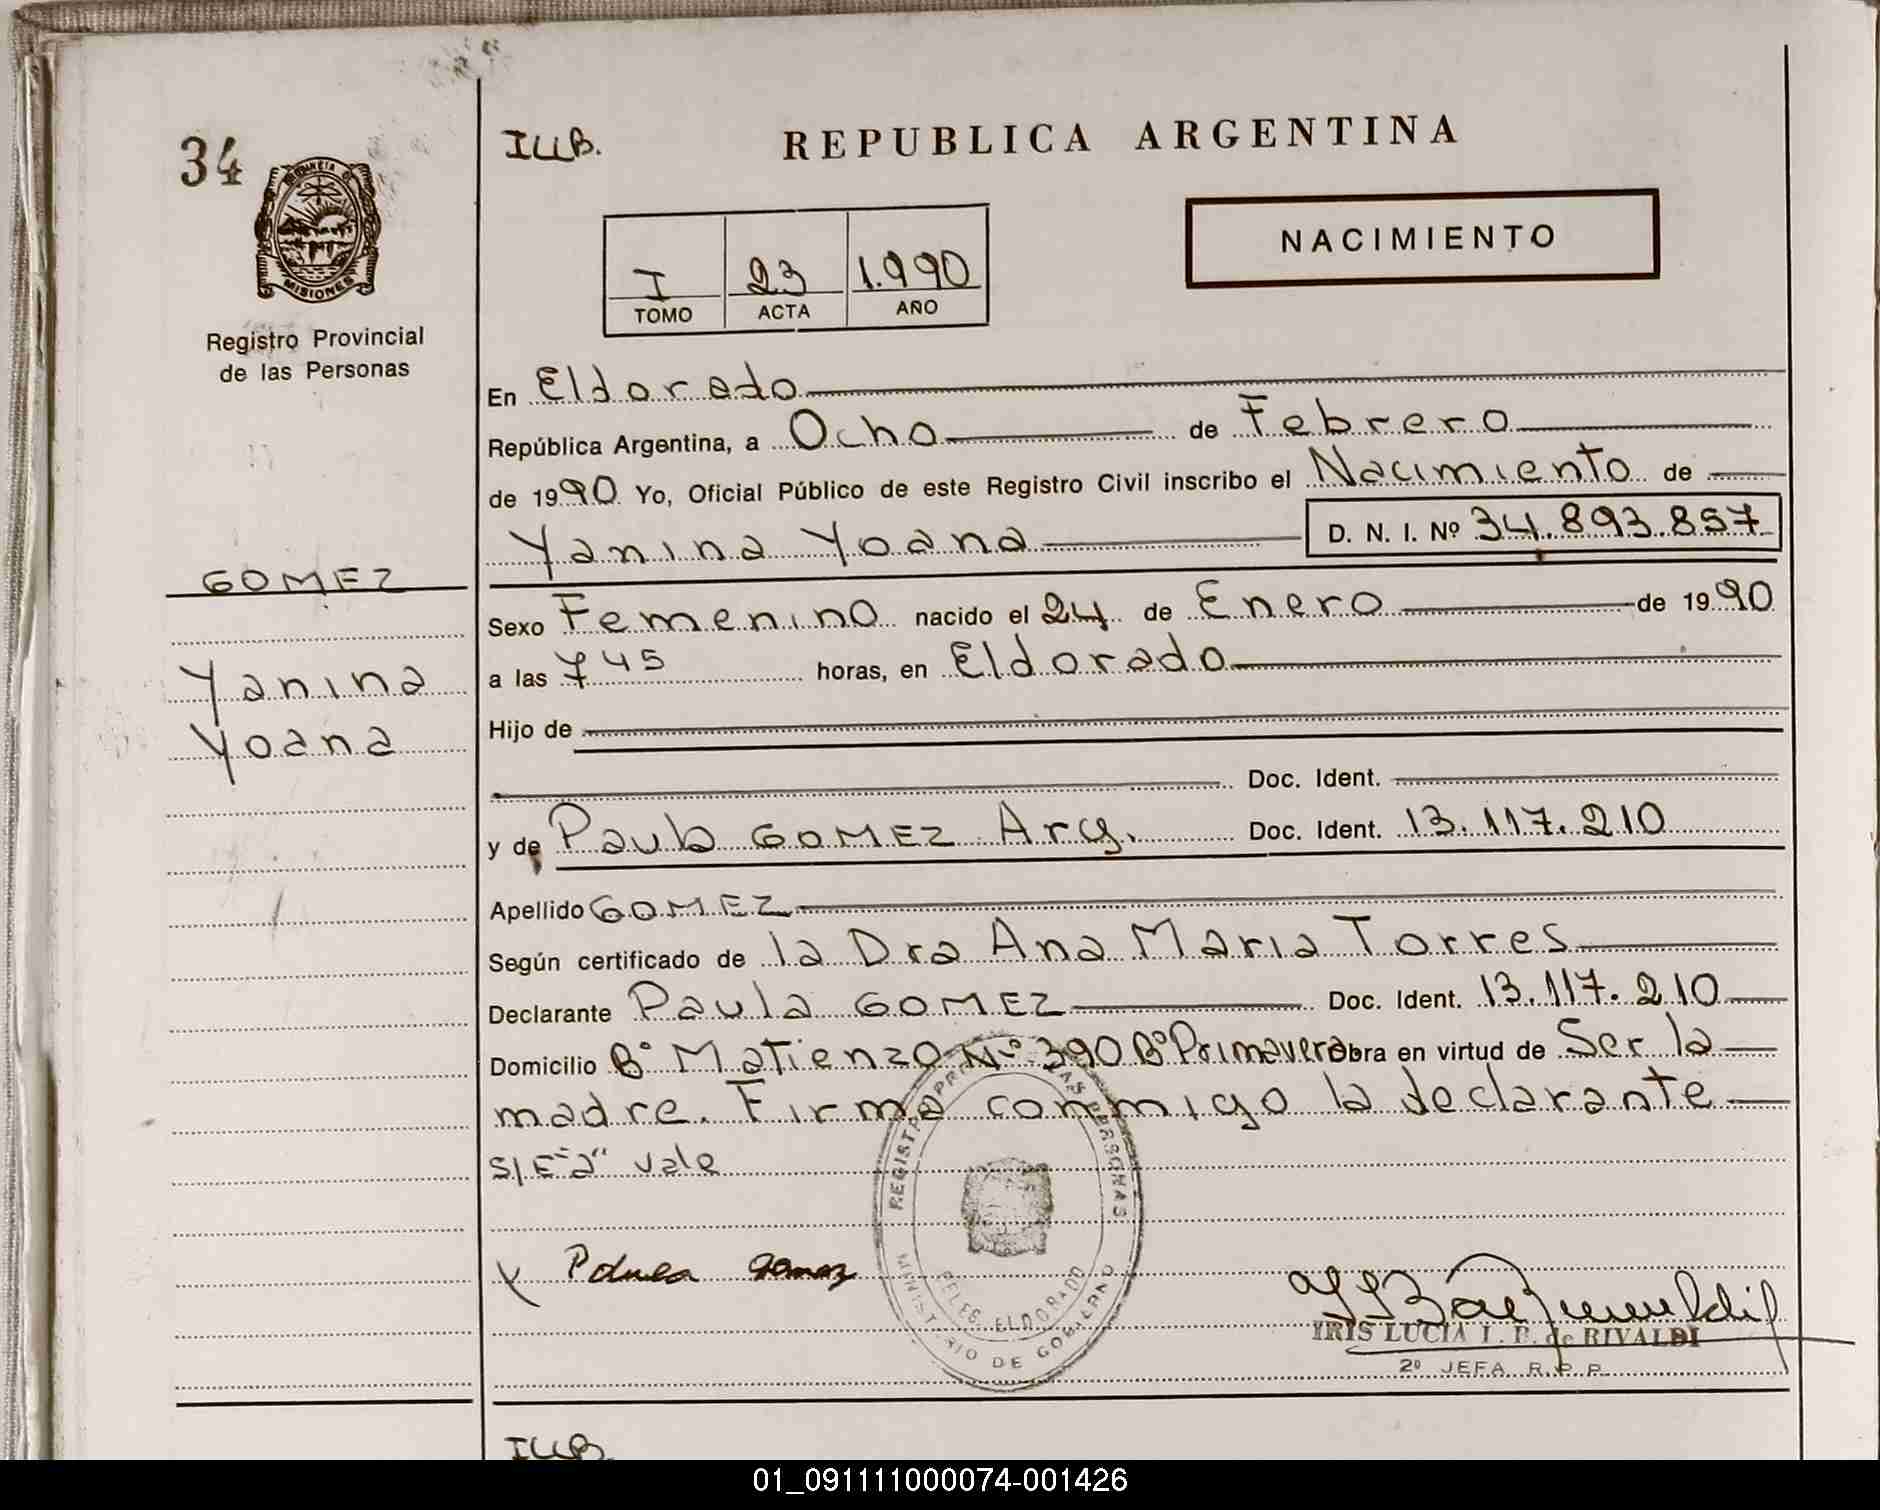 34
PROVINCIA D
MISIONES
Registro Provincial
de las Personas
GOMEZ
Yanina
Yoana
REPUBLICA ARGENTINA
NACIMIENTO
I 23 1.990
TOMO ACTA AÑO
En Eldorado
República Argentina, a Ocho de Febrero
de 1990 Yo, Oficial Público de este Registro Civil inscribo el Nacimiento de
Yanina Yoana D. N. I. Nº 34.893.857
Sexo Femenino nacido el 24 de Enero de 1990
a las 7 45 horas, en Eldorado
Hijo de
Doc. Ident.
y de Paula GOMEZ Arg. Doc. Ident. 13.117.210
Apellido GOMEZ
Según certificado de la Dra Ana Maria Torres
Declarante Paula GOMEZ Doc. Ident. 13.117.210
Domicilio Bº Matienzo Nº 390 Bº Primavera obra en virtud de Ser la
madre. Firma conmigo la declarante
S/E "a" vale
REGISTRO PR LAS PERSONAS
DELEG. ELDORADO
MINISTERIO DE GOBIERNO
IRIS LUCIA I. B. de RIVALDI
2º JEFA R.P.P.
01_091111000074-001426